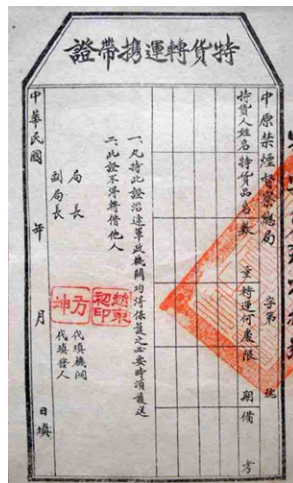 特貨轉運攜帶證
中原禁煙督察總局　字第　號
持貨人姓名 特貨品名 數量 特運何處 限期 備考
一、凡持此證沿途軍政機關均得保護之必要時須護送
二、此證不得轉借他人
局長
副局長
方坤
代填機關
代填發人
中華民國　年　月　日填